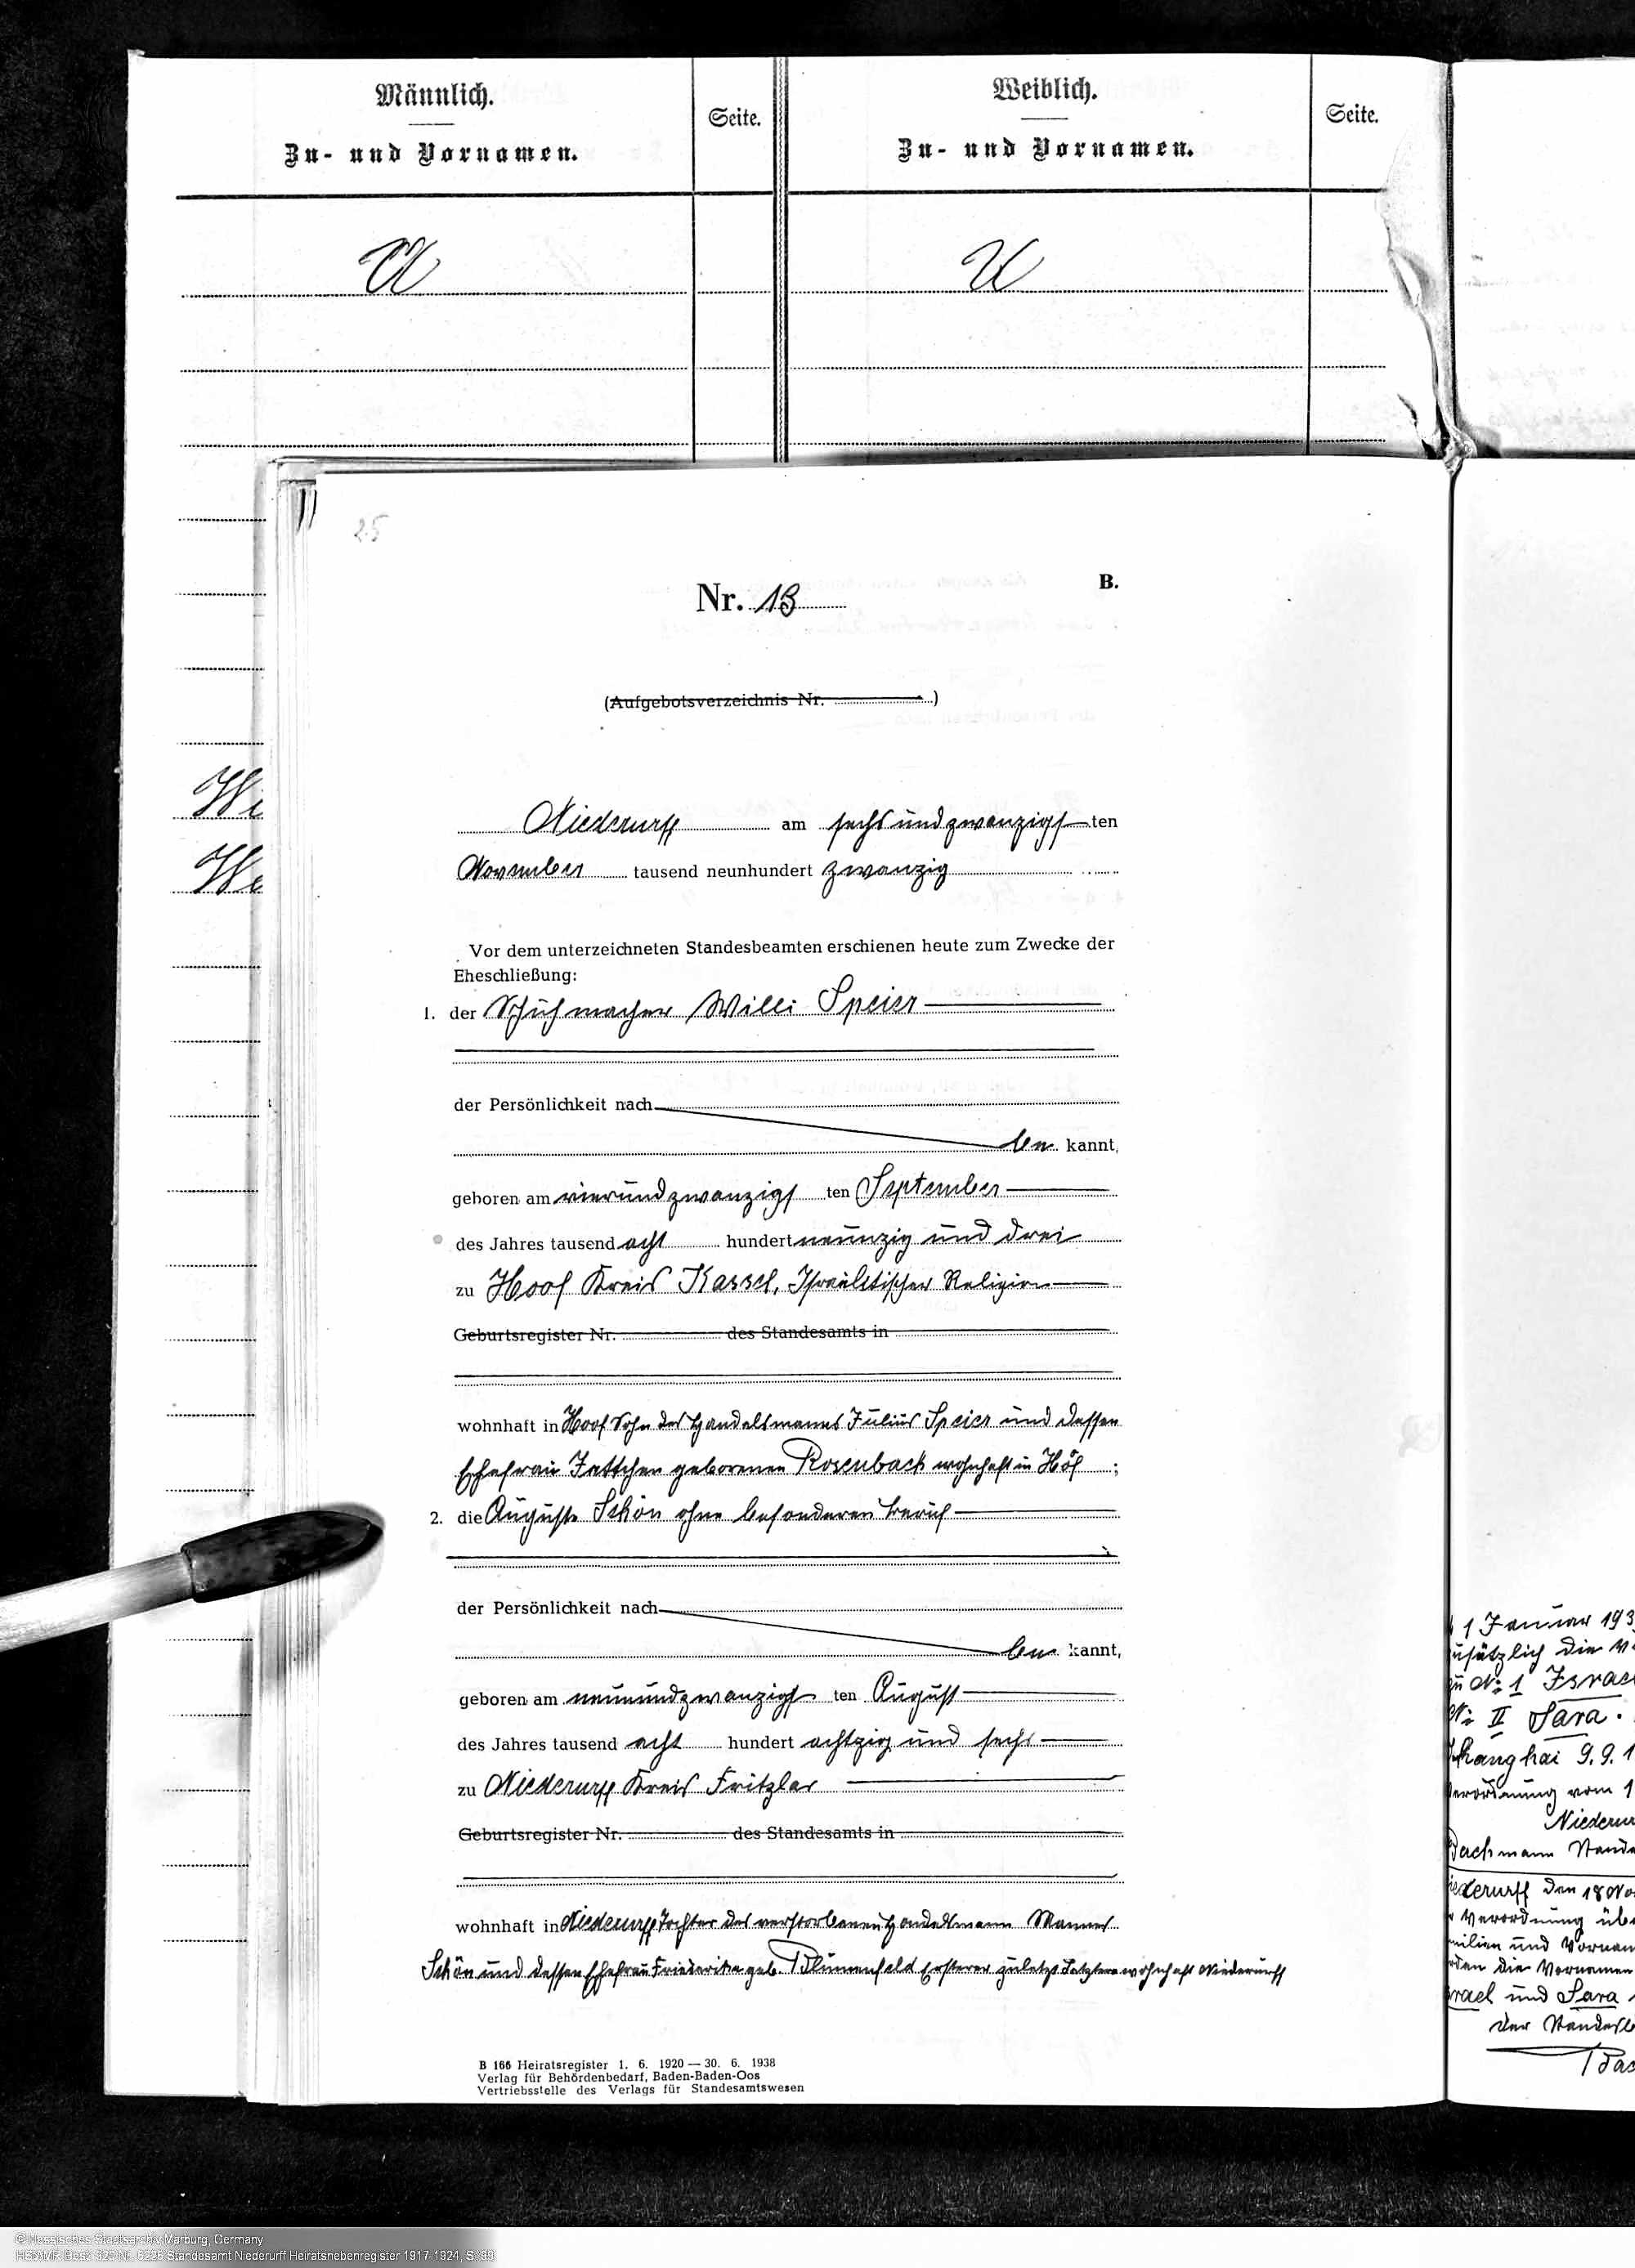 Männlich.
Zu- und Vornamen.
Seite.
Weiblich.
Zu- und Vornamen.
Seite.
U
U
Wi
We
25
Nr. 13
B.
(Aufgebotsverzeichnis Nr. )
Niederurff am sechsundzwanzigsten
November tausend neunhundert zwanzig
Vor dem unterzeichneten Standesbeamten erschienen heute zum Zwecke der
Eheschließung:
1. der Schuhmacher Willi Speier
der Persönlichkeit nach
be kannt,
geboren am vierundzwanzigsten September
des Jahres tausend acht hundert neunzig und drei
zu Hoof Kreis Kassel, Israelitischer Religion
Geburtsregister Nr. des Standesamts in
wohnhaft in Hoof Sohn des Handelsmanns Julius Speier und dessen
Ehefrau Jettchen geborenen Rosenbach wohnhaft in Hof ;
2. die Auguste Schön ohne besonderen Beruf
der Persönlichkeit nach
be kannt,
geboren am neunundzwanzigsten August
des Jahres tausend acht hundert achtzig und sechs
zu Niederurff Kreis Fritzlar
Geburtsregister Nr. des Standesamts in
wohnhaft in Niederurff Tochter des verstorbenen Handelsmann Mannes
Schön und dessen Ehefrau Friederike geb. Blumenfeld Ersterer zuletzt Letztere wohnhaft Niederurff
B 166 Heiratsregister 1. 6. 1920 — 30. 6. 1938
Verlag für Behördenbedarf, Baden-Baden-Oos
Vertriebsstelle des Verlags für Standesamtswesen
1 Januar 193
usätzlich die
zu No 1 Israel
No II Sara.
Shanghai 9. 9. 1
Verordnung vom 1
Niederur
Bachmann Stande
iederurff den 18 No
r Verordnung übe
milien und Vornam
rden die Vornamen
rael und Sara
der Standesb
Bac
© Hessisches Staatsarchiv Marburg, Germany
HStAMR Best. 920 Nr. 6225 Standesamt Niederurff Heiratsnebenregister 1917-1924, S. 99